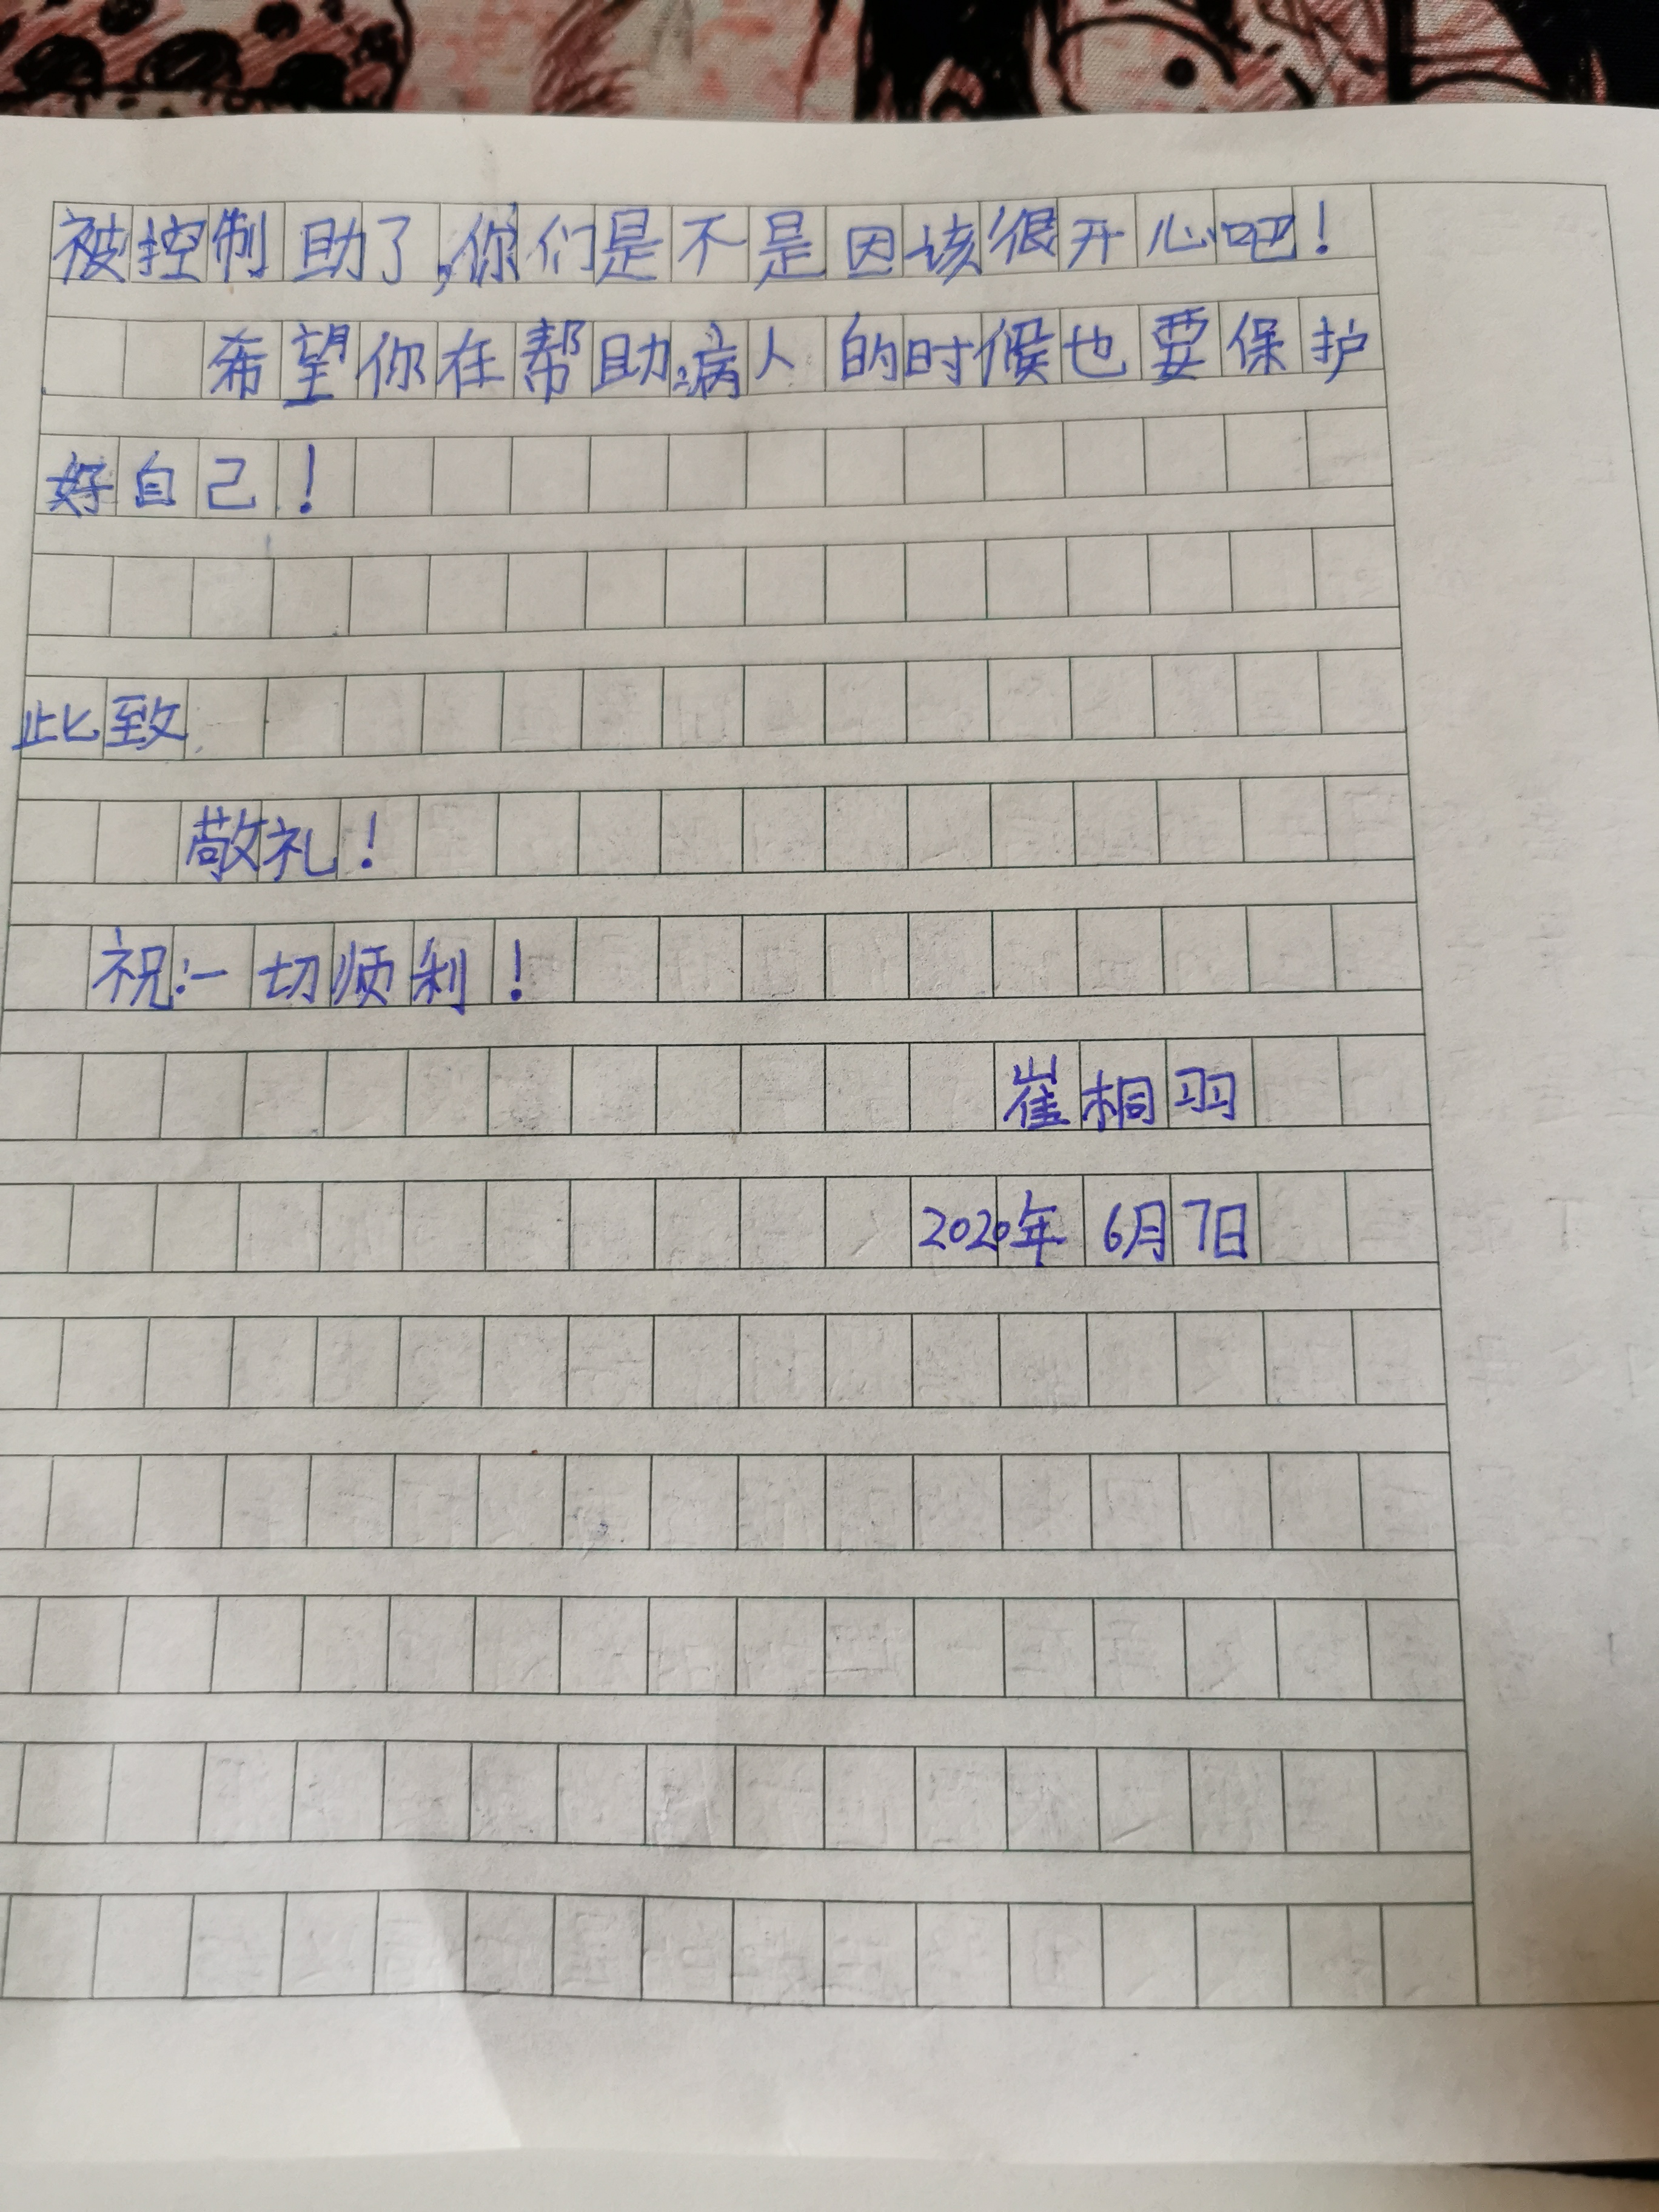 被控制助了,你们是不是因该很开心吧!
希望你在帮助病人的时候也要保护
好自己!
此致
敬礼!
祝:一切顺利!
崔桐羽
2020年6月7日